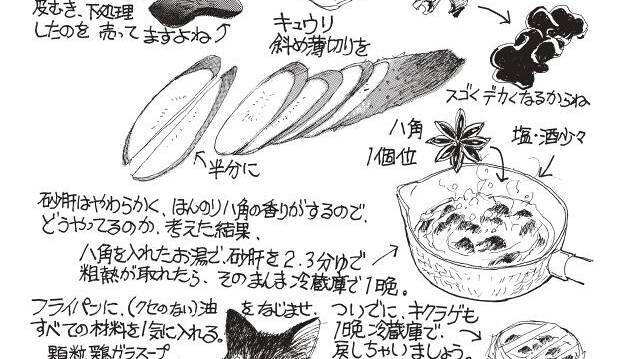 皮むき、下処理
したのを 売ってますよね
キュウリ
斜め薄切りを
スゴくデカくなるからね
半分に
八角
1個位
塩・酒少々
砂肝はやわらかく、ほんのり八角の香りがするので、
どうやってるのか、考えた結果、
八角を入れたお湯で、砂肝を2、3分ゆで
粗熱が取れたら、そのまんま冷蔵庫で1晩。
フライパンに、(クセのない)油をなじませ、
すべての材料を1気に入れる。
顆粒鶏ガラスープ
ついでに、キクラゲも
1晩、冷蔵庫で、
戻しちゃいましょう。